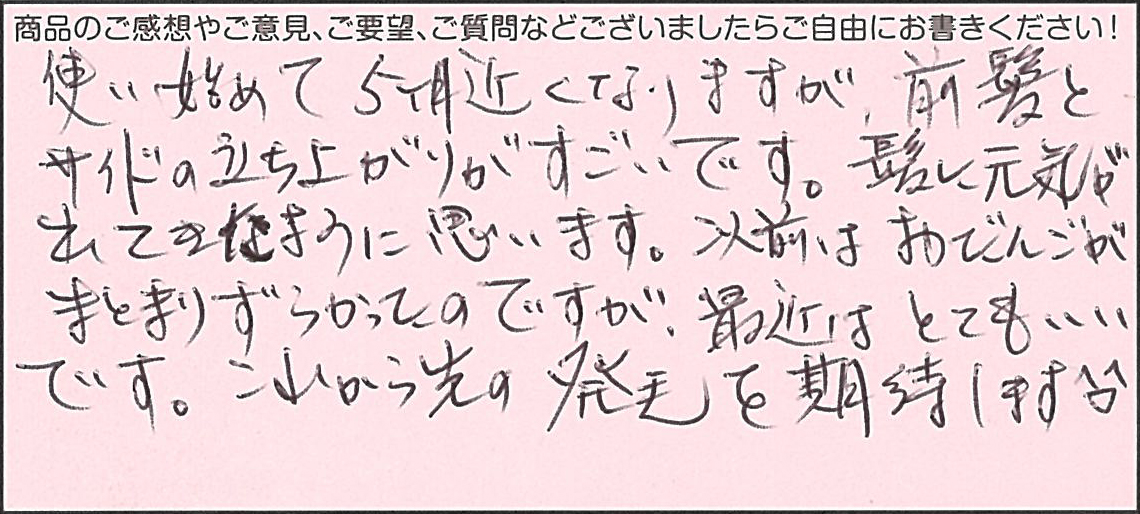 商品のご感想やご意見、ご要望、ご質問などございましたらご自由にお書きください！
使い始めて5ヶ月近くなりますが、前髪と
サイドの立ち上がりがすごいです。髪に元気が
出てきたように思います。以前はおだんごが
まとまりずらかったのですが、最近はとてもいい
です。これから先の発毛を期待します